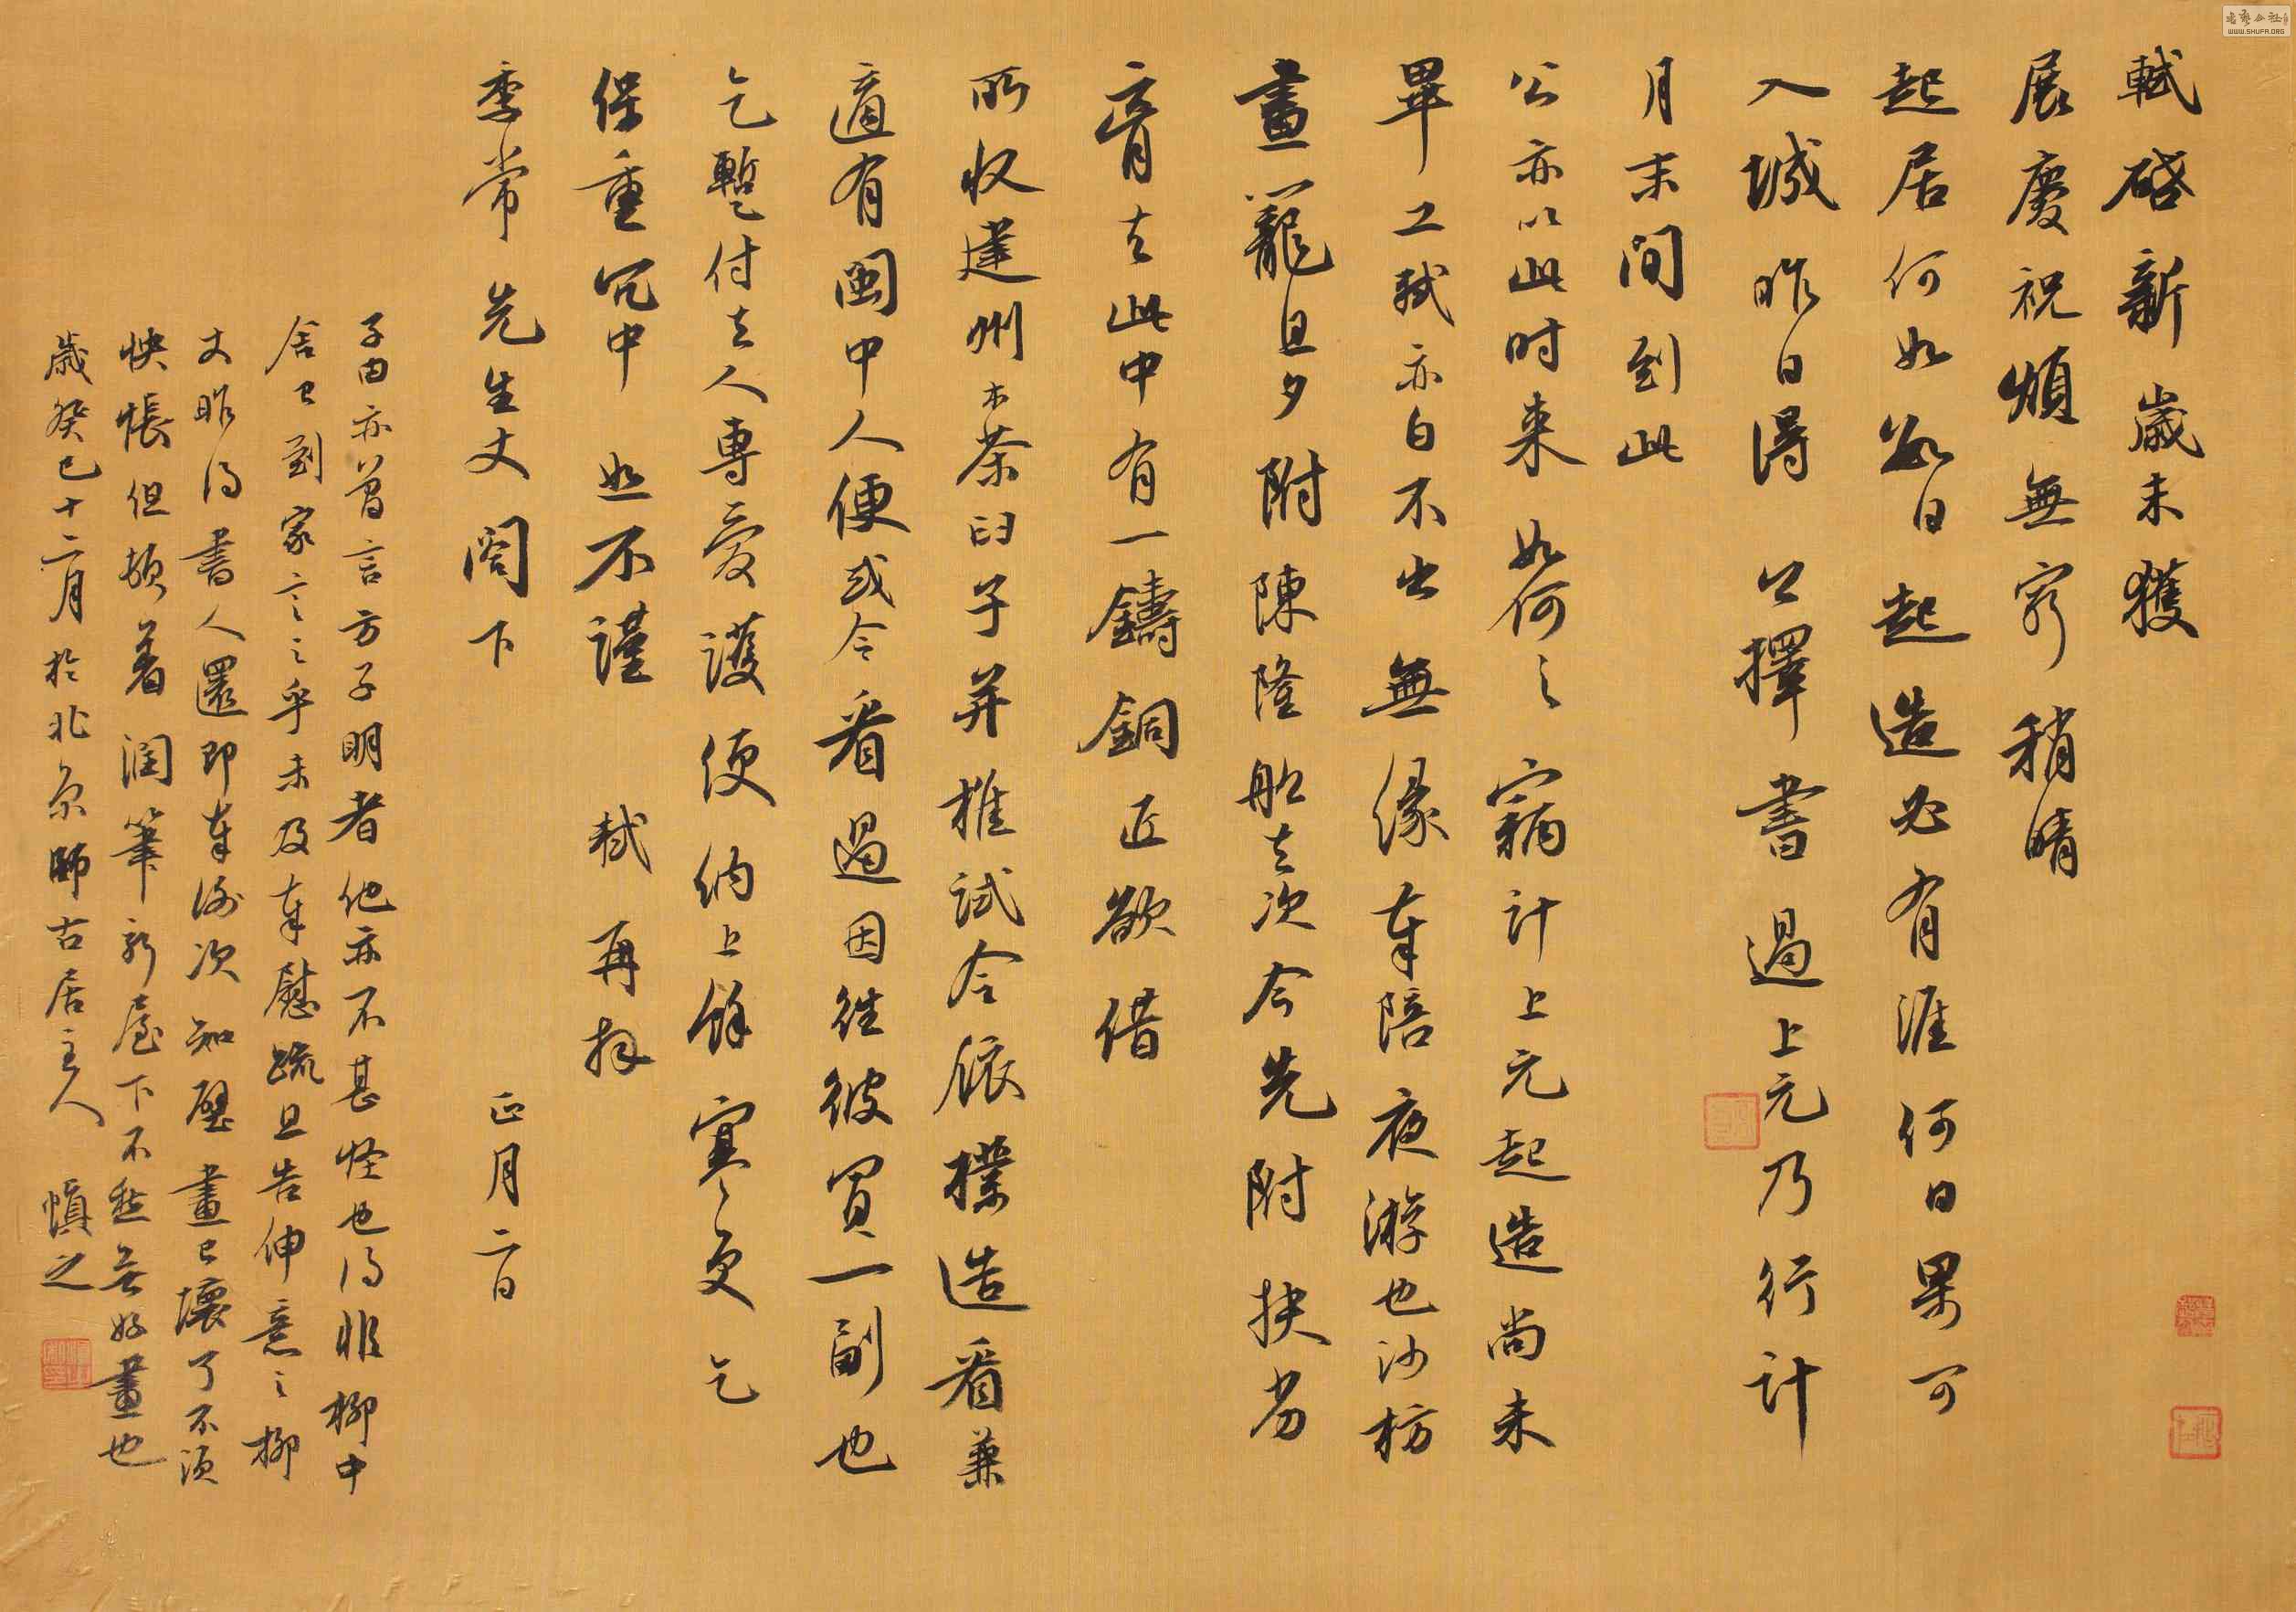 軾啓新歲未獲
展慶祝頌無窮稍晴
起居何如數日起造必有涯何日果可
入城昨日得公擇書過上元乃行計
月末間到此
公亦以此時来如何之竊計上元起造尚未
畢工軾亦自不出無緣奉陪夜游也沙枋
畫籠旦夕附陳隆船去次今先附扶劣
膏去此中有一鑄銅匠欲借
所收建州木茶臼子并椎試令依樣造看兼
適有閩中人便或令看過因往彼買一副也
乞暫付去人專愛護便納上餘寒更乞
保重冗中恕不謹軾再拜
季常先生丈閤下正月二日
子由亦曾言方子明者他亦不甚怪也得非柳中
舍已到家言之乎未及奉慰疏且告伸意之柳
丈昨得書人還即奉謝次知壁畫已壞了不須
怏悵但頓著潤筆新屋下不愁無好畫也
歲癸巳十二月於北京師古居主人慎之
WWW.SHUFA.ORG